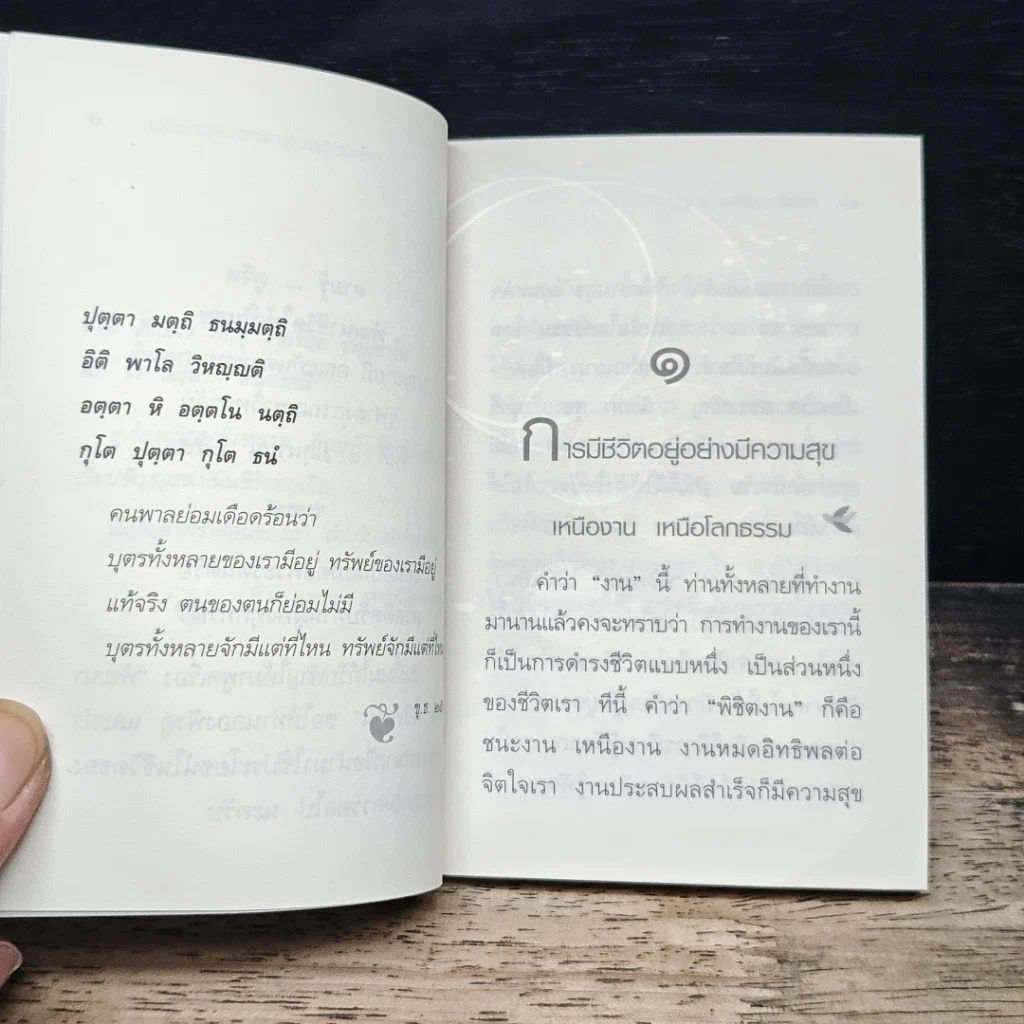 ปุตฺตา มตฺถิ ธนมฺมตฺถิ
อิติ พาโล วิหญฺญติ
อตฺตา หิ อตฺตโน นตฺถิ
กุโต ปุตฺตา กุโต ธนํ
คนพาลย่อมเดือดร้อนว่า
บุตรทั้งหลายของเรามีอยู่ ทรัพย์ของเรามีอยู่
แท้จริง ตนของตนก็ย่อมไม่มี
บุตรทั้งหลายจักมีแต่ที่ไหน ทรัพย์จักมีแต่ที่ไหน
ขุ.ธ.
๑
การมีชีวิตอยู่อย่างมีความสุข
เหนืองาน เหนือโลกธรรม
คำว่า “งาน” นี้ ท่านทั้งหลายที่ทำงาน
มานานแล้วคงจะทราบว่า การทำงานของเรานี้
ก็เป็นการดำรงชีวิตแบบหนึ่ง เป็นส่วนหนึ่ง
ของชีวิตเรา ทีนี้ คำว่า “พิชิตงาน” ก็คือ
ชนะงาน เหนืองาน งานหมดอิทธิพลต่อ
จิตใจเรา งานประสบผลสำเร็จก็มีความสุข